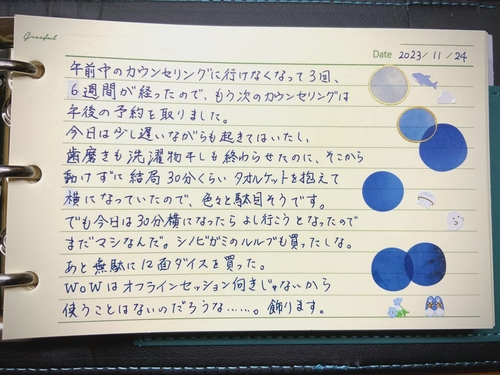 Greeful
Date 2023/11/24
午前中のカウンセリングに行けなくなって3回、
6週間が経ったので、もう次のカウンセリングは
午後の予約を取りました。
今日は少し遅いながらも起きてはいたし、
歯磨きも洗濯物干しも終わらせたのに、そこから
動けずに結局30分くらいタオルケットを抱えて
横になっていたので、色々と駄目そうです。
でも今日は30分横になったらよし行こうとなったので
まだマシなんだ。シノビガミのルルブも買ったしな。
あと無駄に12面ダイスを買った。
WoWはオフラインセッション向きじゃないから
使うことはないのだろうな……。飾ります。